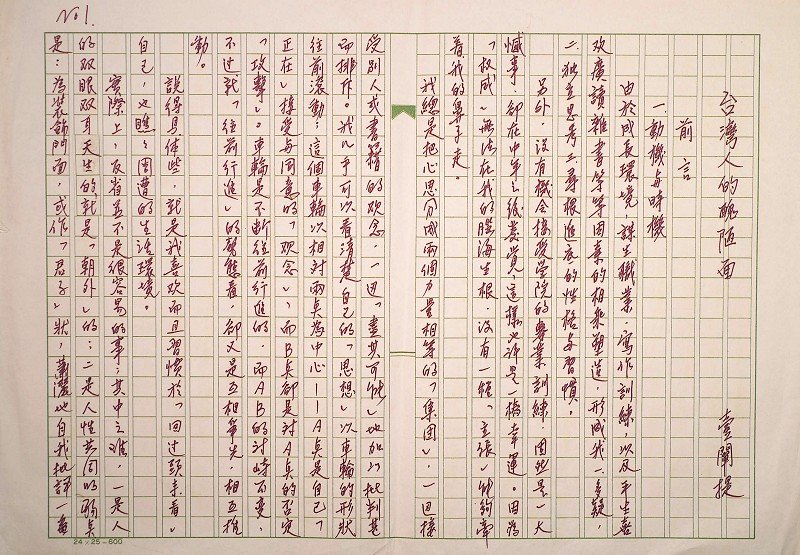 No 1.
台灣人的醜陋面
壹闡提
前言
一、動機與時機
由於成長環境，謀生職業，寫作訓練，以及平生喜
歡廣讀雜書等等因素的相乘塑造，形成我一、多疑，
二、獨立思考三、尋根追底的性格与習慣。
另外，沒有機会接受學院的專業訓練，固然是一大
憾事，卻在中年之後發覺，這樣也许是一樁幸運。因為
「权威」無法在我的腦海生根，沒有一種「主張」能夠牽
着我的鼻子走。
我總是把心思分成兩個力量相等的「集团」，一边接
受別人或書籍的观念，一边「盡其可能」地加以批判甚
而排斥。我几乎可以看清楚自己的「思想」以車輪的形狀
往前滾動；這個車輪以相对兩点為中心——A点是自己「
正在」接受每同意的「观念」，而B点卻是对A点的否定
「攻擊」。車輪是不断往前行進的，而AB的对峙百变，
不过就「往前行進」的整態看，卻又是互相爭先，相互推
動。
說得具体些，就是我喜欢而且習慣於「回过頭來看」
自己，也瞧瞧周遭的生活環境。
實際上，反省並不是很容易的事；其中之难，一是人
的双眼双耳天生的就是「朝外」的；二是人性共同的弱点
是：為裝飾門面，或作「君子」狀，瀟灑地自我批評一番
24×25=600